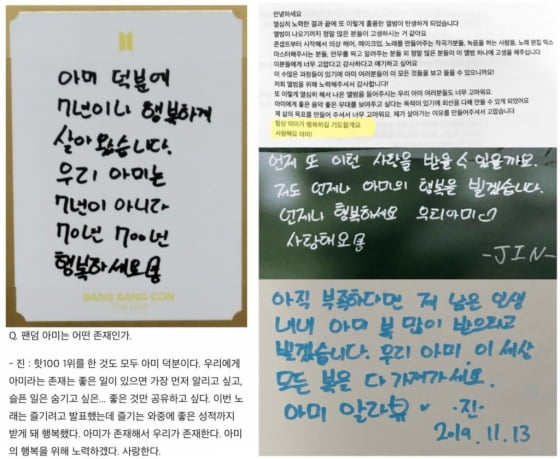 아미 덕분에
7년이나 행복하게
살아 왔습니다.
우리 아미는
7년이 아니라
70년 700년
행복하세요
BANG BANG CON
The Live
Q. 팬덤 아미는 어떤 존재인가.
- 진 : 핫100 1위를 한 것도 모두 아미 덕분이다. 우리에게
아미라는 존재는 좋은 일이 있으면 가장 먼저 알리고 싶고,
슬픈 일은 숨기고 싶은... 좋은 것만 공유하고 싶다. 이번 노
래는 즐기려고 발표했는데 즐기는 와중에 좋은 성적까지
받게 돼 행복했다. 아미가 존재해서 우리가 존재한다. 아미
의 행복을 위해 노력하겠다. 사랑한다.
안녕하세요
열심히 노력한 결과 끝에 또 이렇게 훌륭한 앨범이 탄생하게 되었습니다
앨범이 나오기까지 정말 많은 분들이 고생하시는 거 같아요
콘셉트부터 시작해서 의상 헤어, 메이크업, 노래를 만들어주는 작곡가분들, 녹음을 하는 사람들, 노래 편집 믹스
마스터해주시는 분들, 안무를 짜고 알려주시는 분들 또 정말 많은 분들이 이 앨범 하나에 고생을 해주십니다
이분들에게 너무 고맙다고 감사하다고 얘기하고 싶어요
이 수많은 과정들이 있기에 아미 여러분들이 이 모든 것들을 보고 들을 수 있으니까요!
저희 앨범을 위해 노력해주셔서 감사합니다!
또 이렇게 열심히 해서 나온 앨범을 들어주시는 우리 아미 여러분들도 너무 고마워요.
아미에게 좋은 음악 좋은 무대를 보여주고 싶다는 목적이 있기에 최선을 다해 만들 수 있게 되었어요
제 삶의 목표를 만들어 주셔서 너무 고마워요. 제가 살아가는 이유를 만들어주셔서 고맙습니다
항상 아미가 행복하길 기도할게요
사랑해요 아미!
언제 또 이런 사랑을 받을 수 있을까요..
저도 언제나 아미의 행복을 빌겠습니다.
언제나 행복하세요 우리아미♡
사랑해요
-JIN-
아직 부족하다면 저 남은 인생
내내 아미 복 많이 받으라고
빌겠습니다. 우리 아미, 이 세상
모든 복을 다 가져가세요.
아미 알라뷰 -진-
2019. 11. 13